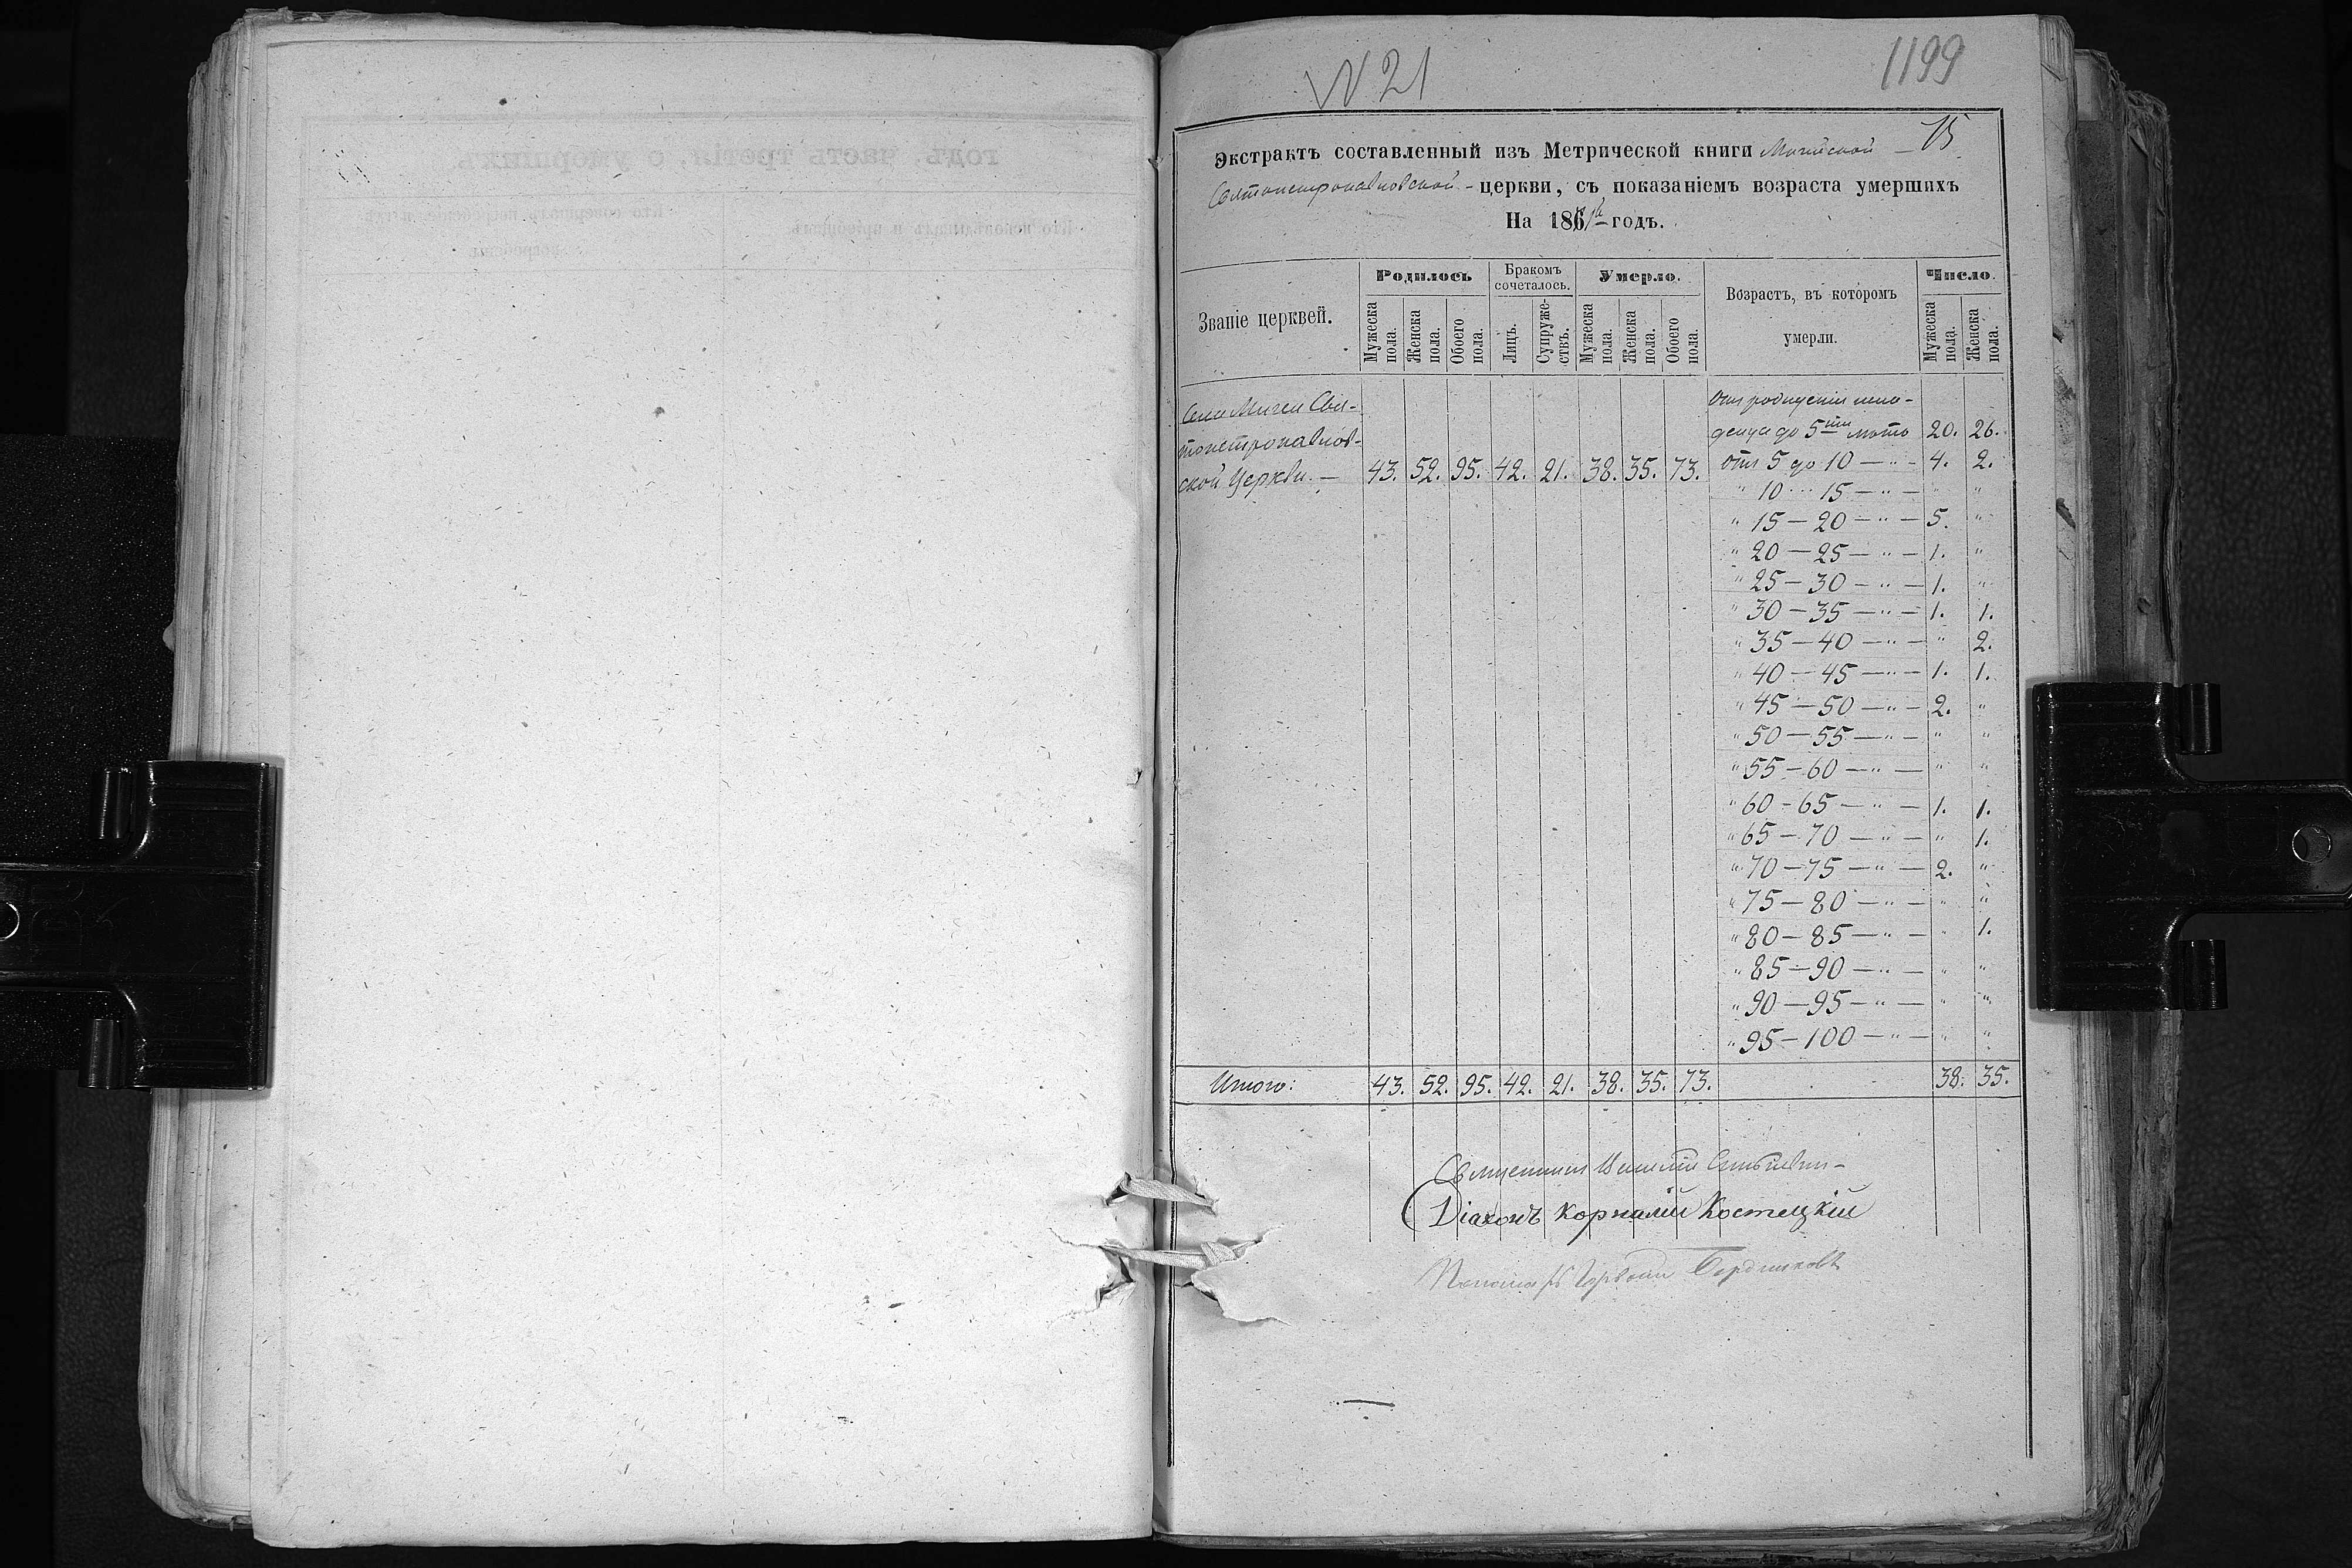 N 21
1199
15
Экстрактъ составленный изъ Метрической книги
Святопетропавловской - церкви, съ показаніемъ возраста умершихъ
На 186 годъ.
Званіе церквей. Родилось Бракомъ сочеталось. Умерло. Возрастъ, въ которомъ умерли. Число.
Мужеска пола. Женска пола. Обоего пола. Лицъ. Супружествъ. Мужеска пола. Женска пола. Обоего пола. Мужеска пола. Женска пола.
Села Мигеи Свя-
топетропавлов-
ской Церкви. — 43. 52. 95. 42. 21. 38. 35. 73.
Отъ рожденія мла-
денца до 5 20. 26.
Отъ 5 до 10 — " — 4. 2.
" 10 — 15 — " — " "
" 15 — 20 — " — 5. "
" 20 — 25 — " — 1. "
" 25 — 30 — " — 1. "
" 30 — 35 — " — 1. 1.
" 35 — 40 — " — " 2.
" 40 — 45 — " — 1. 1.
" 45 — 50 — " — 2. "
" 50 — 55 — " — " "
" 55 — 60 — " — " "
" 60 — 65 — " — 1. 1.
" 65 — 70 — " — " 1.
" 70 — 75 — " — 2. "
" 75 — 80 — " — " "
" 80 — 85 — " — " 1.
" 85 — 90 — " — " "
" 90 — 95 — " — " "
" 95 — 100 — " — " "
Итого: 43. 52. 95. 42. 21. 38. 35. 73. 38. 35.
Священникъ
Діаконъ Корнилій Костецкій
Пономарь Бердниковъ
годъ, часть третія, о умершихъ.
Кто исповѣдывалъ и пріобщалъ.
Кто совершалъ погребеніе и гдѣ погребены.